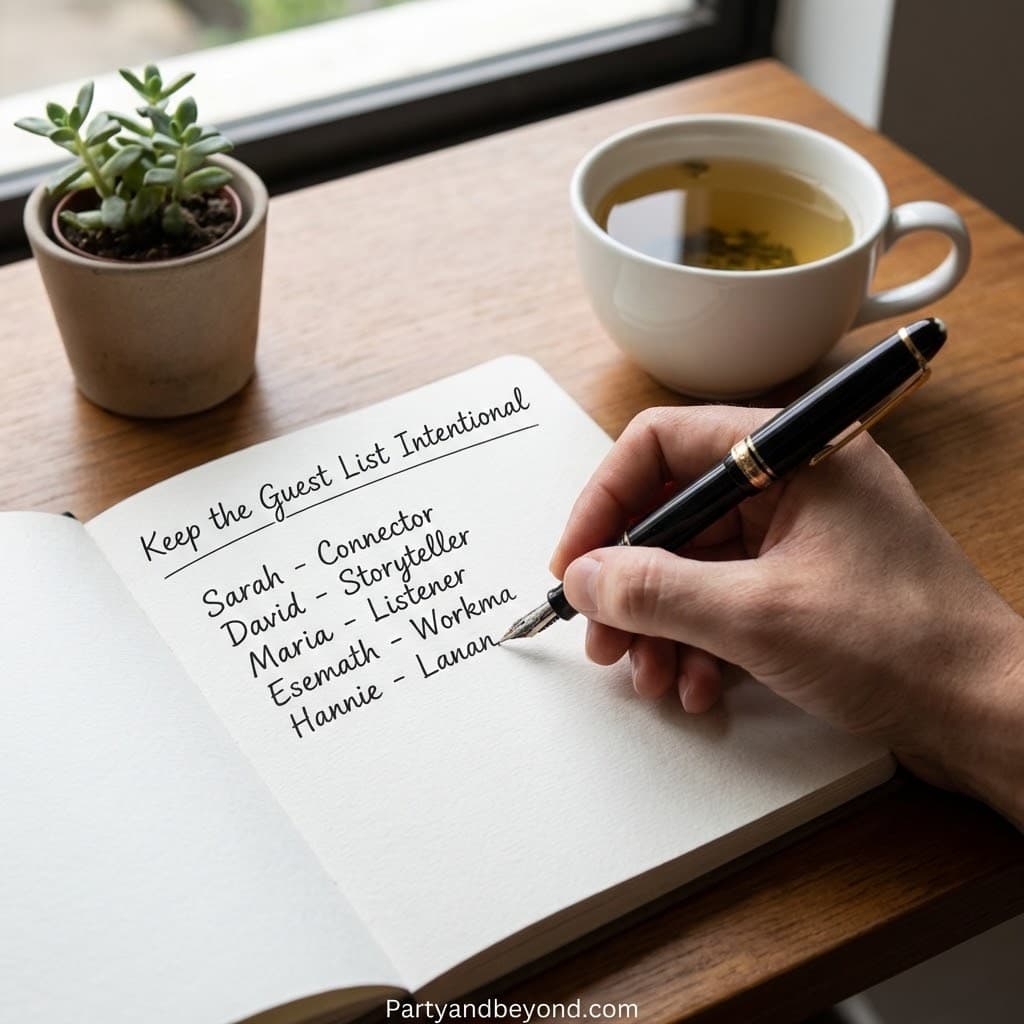 Keep the Guest List Intentional
Sarah - Connector
David - Storyteller
Maria - Listener
Esemath - Workma
Hannie - Lanan
Partyandbeyond.com